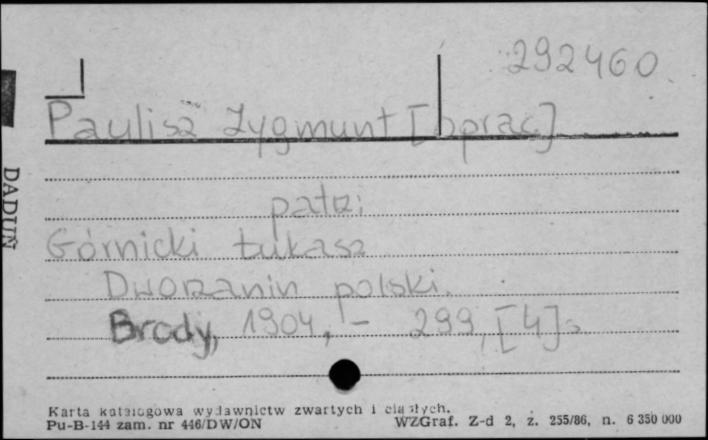 292460
Paulisz Zygmunt [oprac]
DADUŃ
patrz:
Górnicki Łukasz
Dworzanin polski.
Brody, 1904, - 299, [4] s
Karta katalogowa wydawnictw zwartych i ciągłych.
Pu-B-144 zam. nr 446/DW/ON WZGraf. Z-d 2, z. 255/86, n. 6 350 000